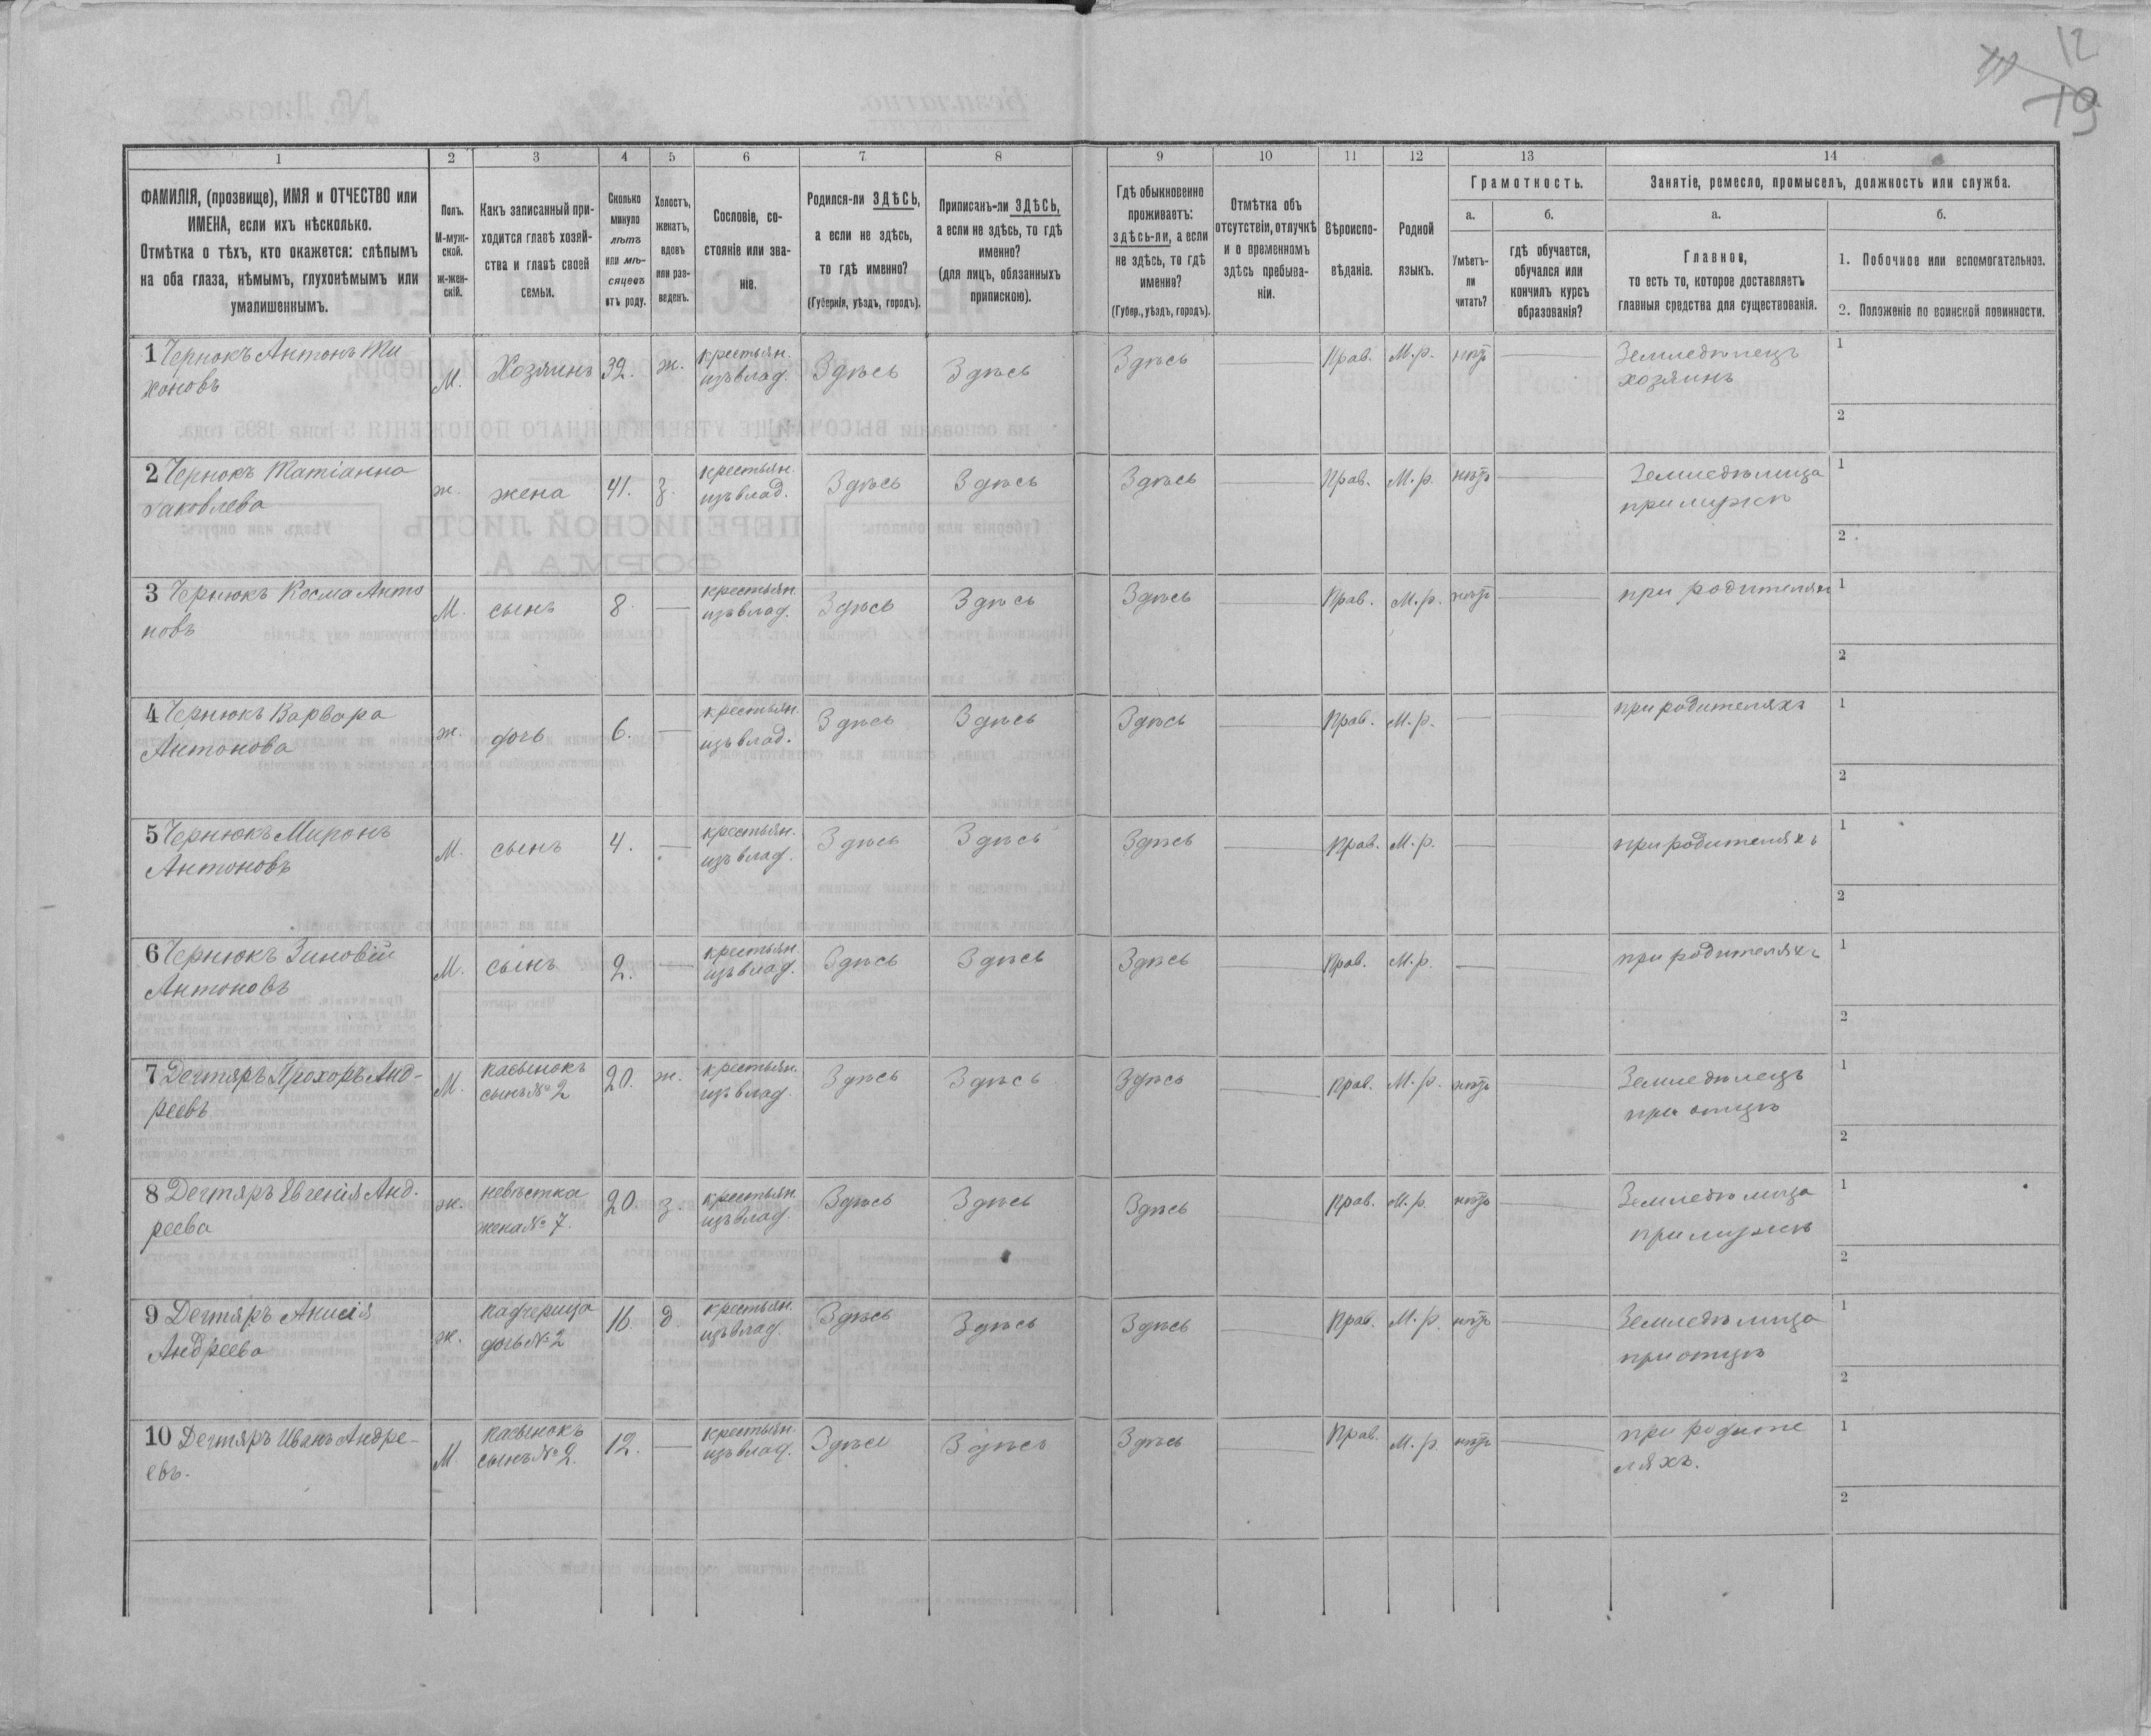 12
19
1 2 3 4 5 6 7 8 9 10 11 12 13 14
ФАМИЛІЯ, (прозвище), ИМЯ и ОТЧЕСТВО или
ИМЕНА, если ихъ нѣсколько.
Отмѣтка о тѣхъ, кто окажется: слѣпымъ
на оба глаза, нѣмымъ, глухонѣмымъ или
умалишеннымъ.
Полъ.
М-муж-
ской.
ж-жен-
скій.
Какъ записанный при-
ходится главѣ хозяй-
ства и главѣ своей
семьи.
Сколько
минуло
лѣтъ
или мѣ-
сяцевъ
отъ роду.
Холостъ,
женатъ,
вдовъ
или раз-
веденъ.
Сословіе, со-
стояніе или зва-
ніе.
Родился-ли ЗДѢСЬ,
а если не здѣсь,
то гдѣ именно?
(Губернія, уѣздъ, городъ).
Приписанъ-ли ЗДѢСЬ,
а если не здѣсь, то гдѣ
именно?
(для лицъ, обязанныхъ
припискою).
Гдѣ обыкновенно
проживаетъ:
здѣсь-ли, а если
не здѣсь, то гдѣ
именно?
(Губер., уѣздъ, городъ).
Отмѣтка объ
отсутствіи, отлучкѣ
и о временномъ
здѣсь пребыва-
ніи.
Вѣроиспо-
вѣданіе.
Родной
языкъ.
Грамотность.
а. б.
Умѣетъ-
ли
читать?
гдѣ обучается,
обучался или
кончилъ курсъ
образованія?
Занятіе, ремесло, промыселъ, должность или служба.
а. б.
Главное,
то есть то, которое доставляетъ
главныя средства для существованія.
1. Побочное или вспомогательное.
2. Положеніе по воинской повинности.
1 Чернюкъ Антонъ Ти М. Хозяинъ 32. ж. крестьян. Здѣсь Здѣсь Здѣсь Прав. М.р. нѣтъ Земледѣлецъ 1
хоновъ изъ влад. хозяинъ 2
2 Чернюкъ Татіанна ж. жена 41. з. крестьян. Здѣсь Здѣсь Здѣсь Прав. М.р. нѣтъ Земледѣлица 1
Яковлева изъ влад. при мужѣ 2
3 Чернюкъ Косма Анто М. сынъ 8 крестьян. Здѣсь Здѣсь Здѣсь Прав. М.р. нѣтъ при родителях 1
новъ изъ влад. 2
4 Чернюкъ Варвара ж. дочь 6. крестьян. Здѣсь Здѣсь Здѣсь Прав. М.р. при родителяхъ 1
Антонова изъ влад. 2
5 Чернюкъ Миронъ М. сынъ 4. крестьян. Здѣсь Здѣсь Здѣсь Прав. М.р. при родителяхъ 1
Антоновъ изъ влад. 2
6 Чернюкъ Зиновій М. сынъ 2. крестьян. Здѣсь Здѣсь Здѣсь Прав. М.р. при родителяхъ 1
Антоновъ изъ влад. 2
7 Дегтяръ Прохоръ Анд- М. пасынокъ 20. ж. крестьян. Здѣсь Здѣсь Здѣсь Прав. М.р. нѣтъ Земледѣлецъ 1
реевъ сынъ № 2 изъ влад. при отцѣ 2
8 Дегтяръ Евгенія Анд- ж. невѣстка 20 з. крестьян. Здѣсь Здѣсь Здѣсь Прав. М.р. нѣтъ Земледѣлица 1
реева жена № 7. изъ влад. при мужѣ 2
9 Дегтяръ Анисія ж. падчерица 16. д. крестьян. Здѣсь Здѣсь Здѣсь Прав. М.р. нѣтъ Земледѣлица 1
Андреева дочь № 2 изъ влад. при отцѣ 2
10 Дегтяръ Иванъ Андре- М пасынокъ 12. крестьян. Здѣсь Здѣсь Здѣсь Прав. М.р. нѣтъ при родите 1
евъ. сынъ № 2. изъ влад. ляхъ. 2